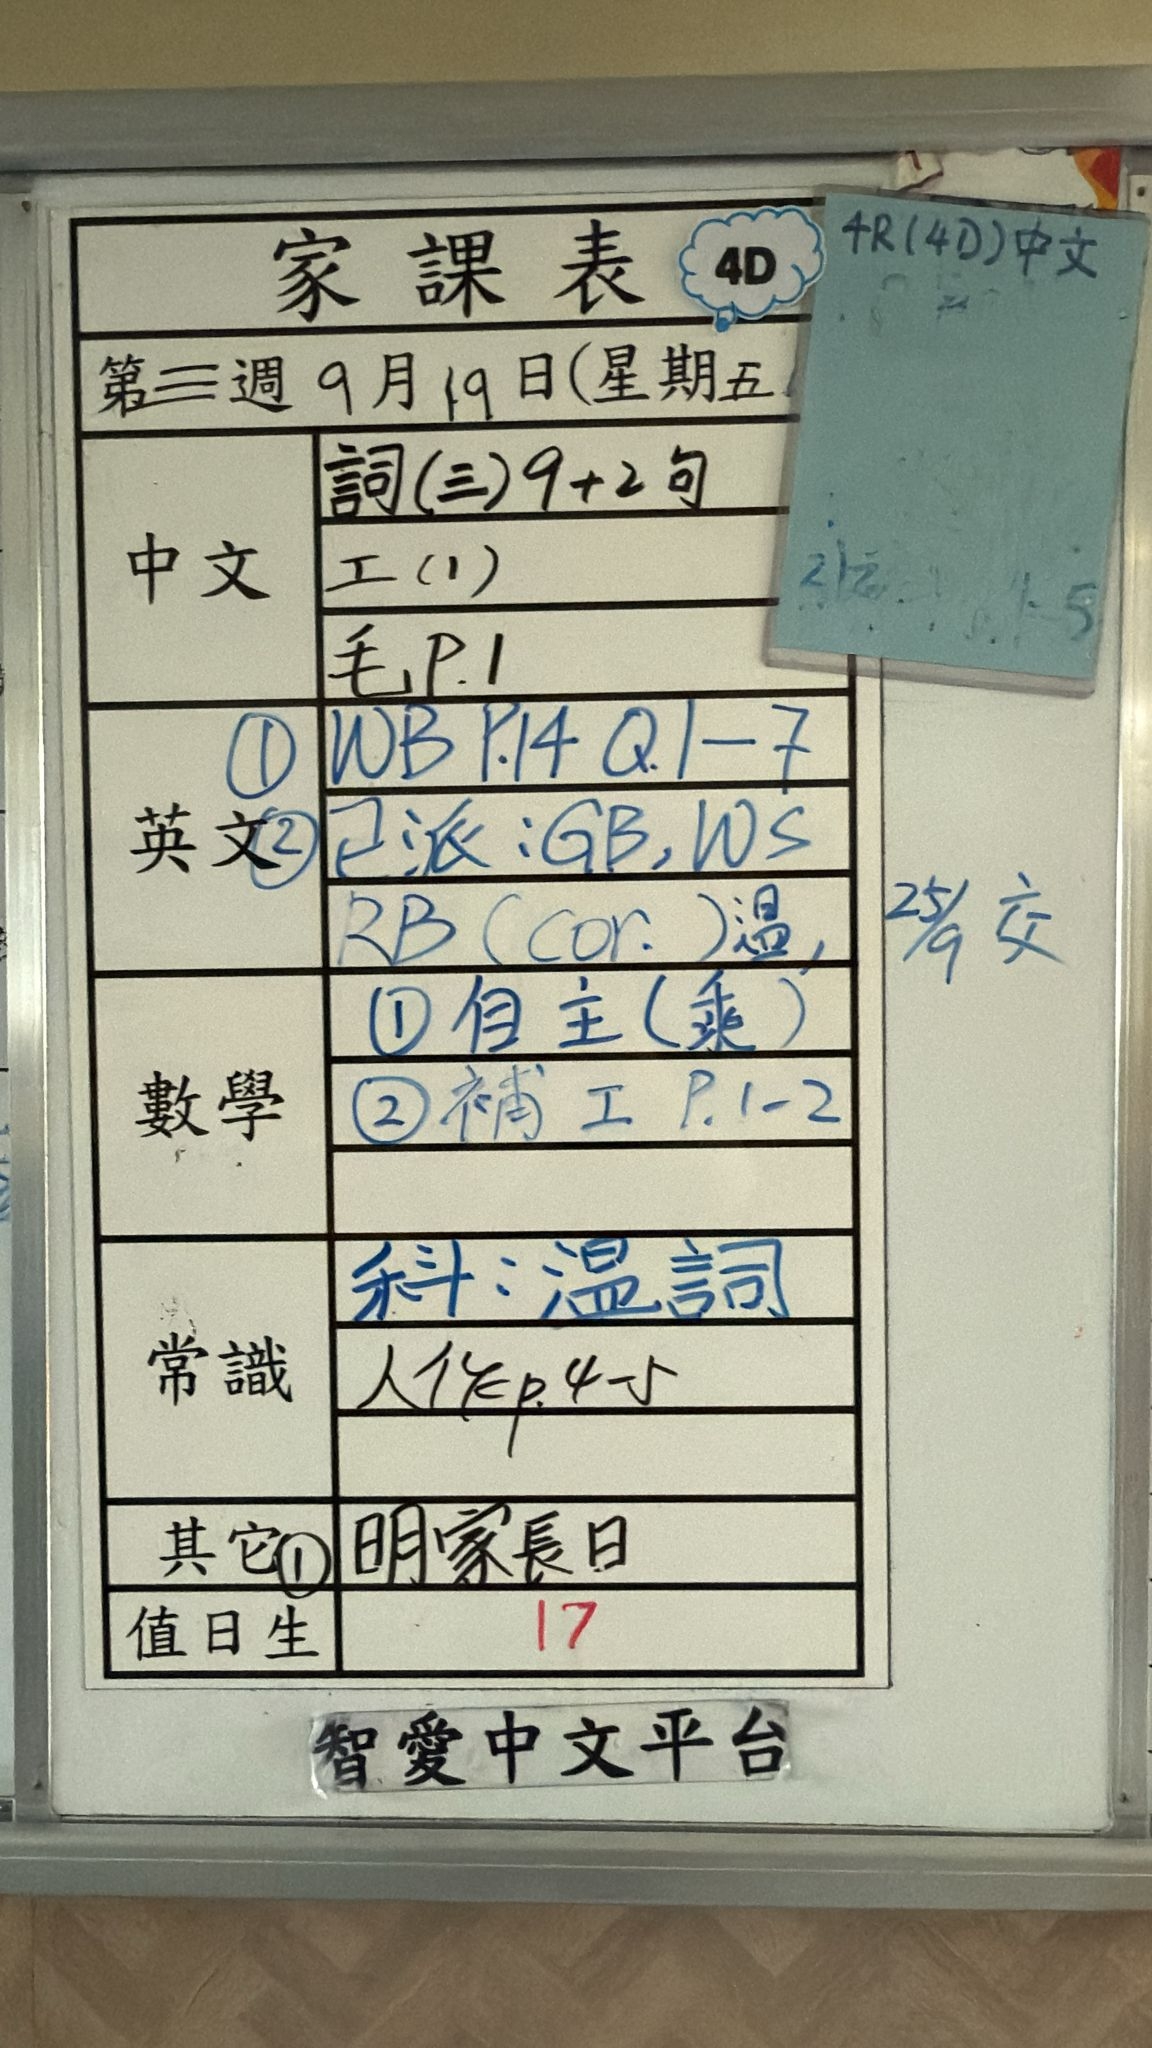 家課表 4D
4R(4D)中文
第三週 9月19日(星期五
中文
詞(三)9+2句
工(1)
毛P.1
英文
① WB P.14 Q.1-7
② 已派:GB, WS
RB (cor.)溫, 25/9 交
數學
① 自主(乘)
② 補工 P.1-2
常識
科:溫詞
人作p.4-5
其它① 明家長日
值日生 17
智愛中文平台